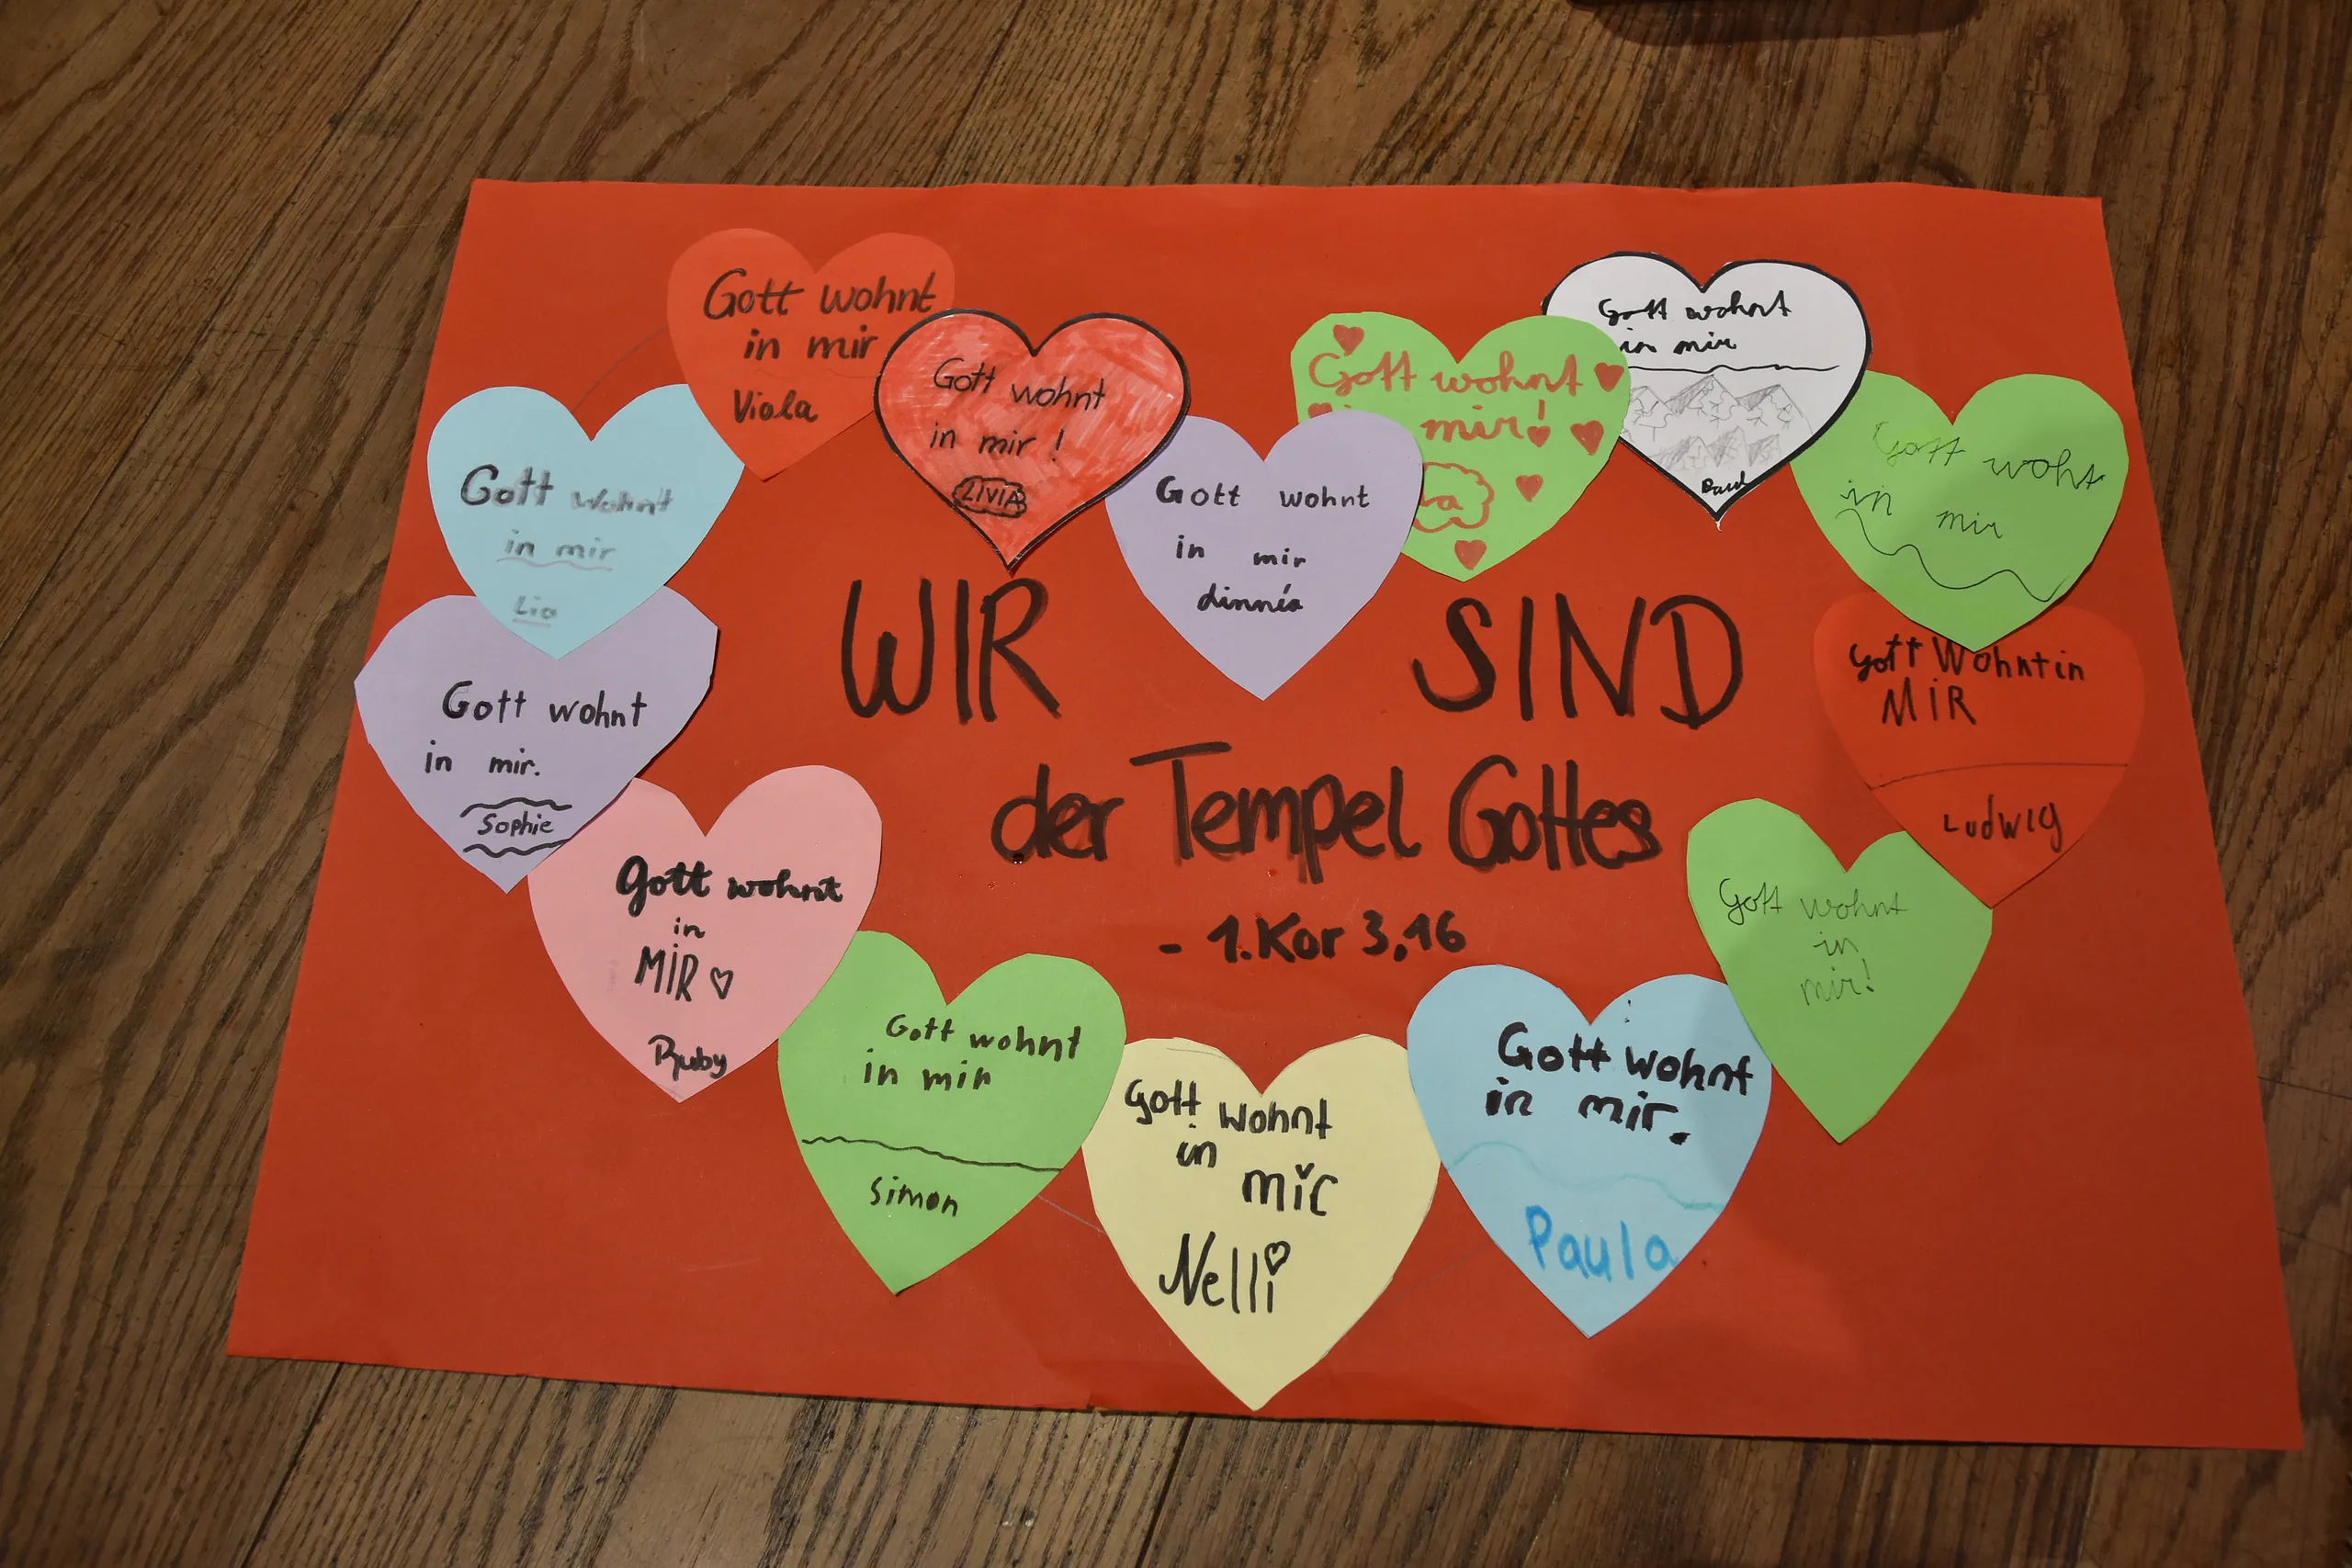 Gott wohnt
in mir
Viola
Gott wohnt
in mir !
LIVIA
Gott wohnt
in mir
dinnéa
Gott wohnt
mir!
a
Gott wohnt
in mir
Paul
Gott woht
in mir
Gott wohnt
in mir
Lia
Gott wohnt
in mir.
Sophie
WIR SIND
der Tempel Gottes
- 1.Kor 3,16
Gott Wohnt in
MIR
Ludwig
Gott wohnt
in
MIR
Ruby
Gott wohnt
in mir
Simon
Gott wohnt
in
mir
Nelli
Gott wohnt
in mir.
Paula
Gott wohnt
in
mir!